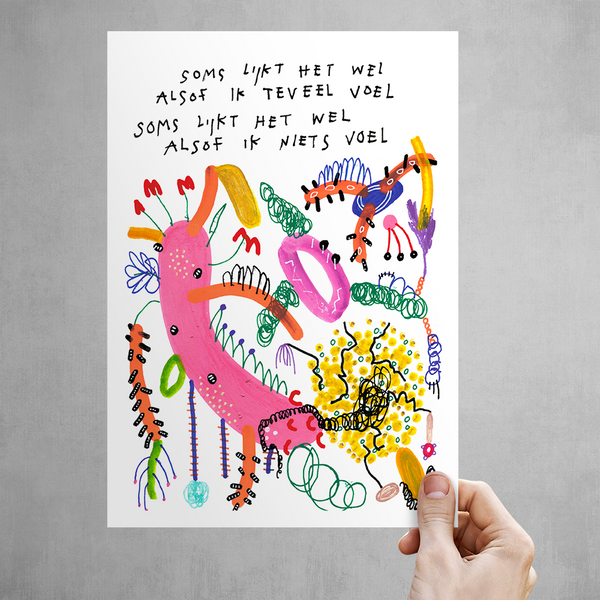 SOMS LIJKT HET WEL
ALSOF IK TEVEEL VOEL
SOMS LIJKT HET WEL
ALSOF IK NIETS VOEL